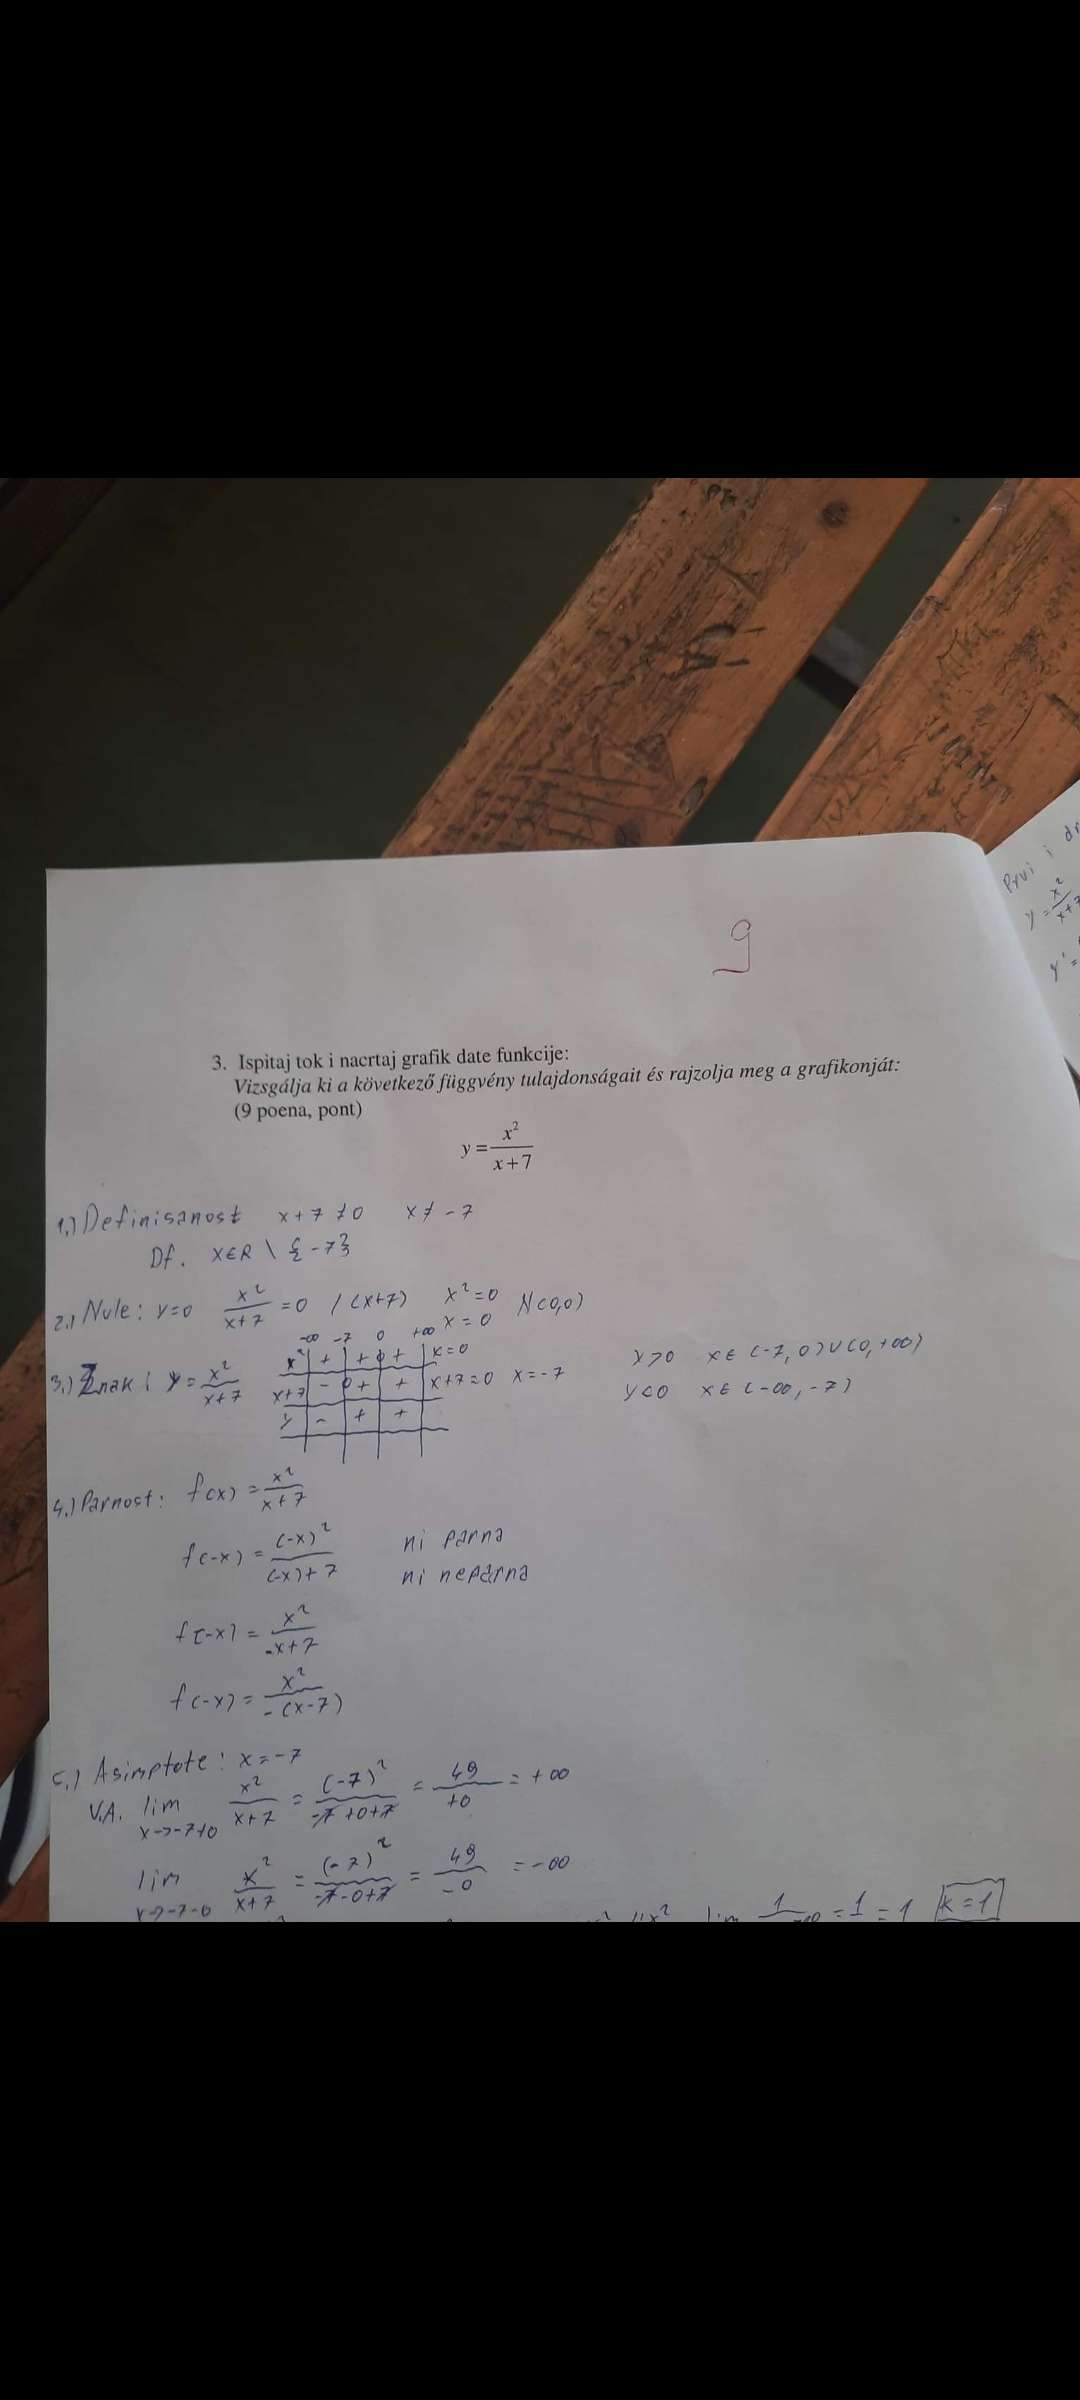 Prvi i
y = x²/x+7
y' =
9
3. Ispitaj tok i nacrtaj grafik date funkcije:
Vizsgálja ki a következő függvény tulajdonságait és rajzolja meg a grafikonját:
(9 poena, pont)
y = x²/x+7
1.) Definisanost x+7≠0 x≠-7
Df. x∈R \ {-7}
2.) Nule: y=0 x²/x+7 = 0 /(x+7) x²=0 N(0,0)
x=0
-∞ -7 0 +∞
3.) Znak: y = x²/x+7 x² + + 0 + x=0 y>0 x∈(-7,0)∪(0,+∞)
x+7 - 0 + + x+7=0 x=-7 y<0 x∈(-∞,-7)
y - + +
4.) Parnost: f(x) = x²/x+7
f(-x) = (-x)²/(-x)+7 ni parna
ni neparna
f(-x) = x²/-x+7
f(-x) = x²/-(x-7)
5.) Asimptote: x=-7
V.A. lim x→-7+0 x²/x+7 = (-7)²/-7+0+7 = 49/+0 = +∞
lim x→-7-0 x²/x+7 = (-7)²/-7-0+7 = 49/-0 = -∞
= 1 = 1 k=1